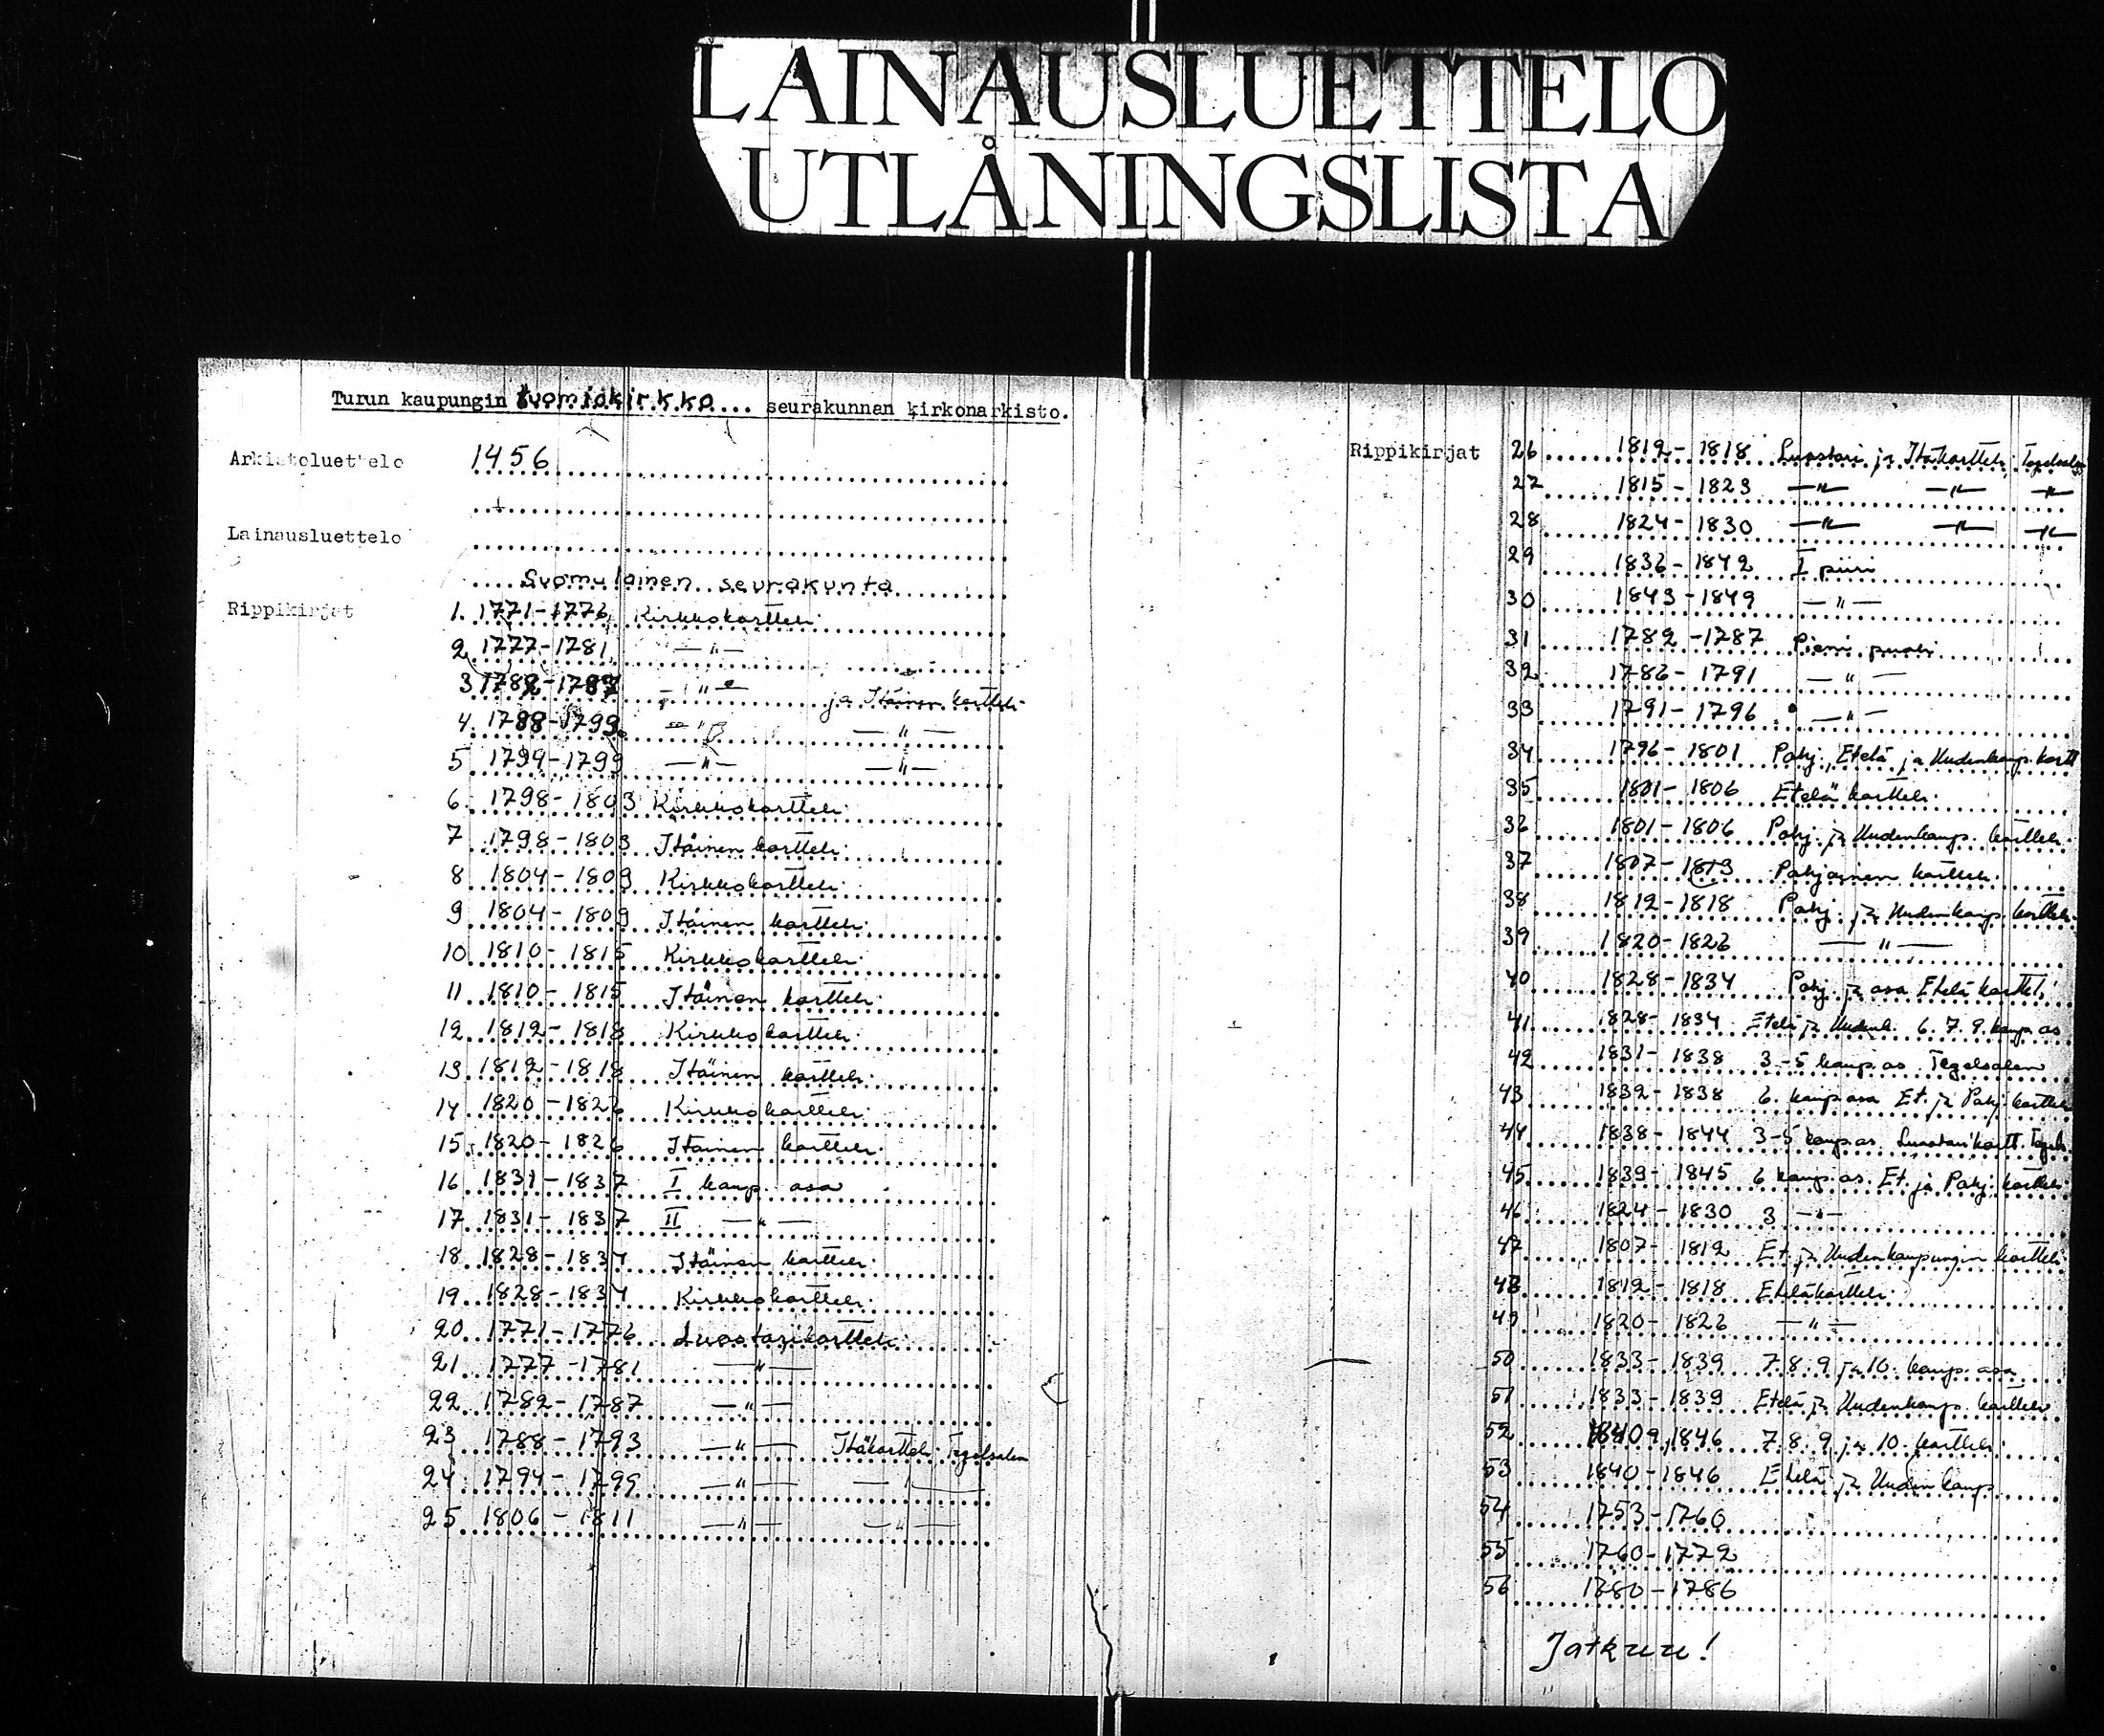 LAINAUSLUETTELO
UTLÅNINGSLISTA
Turun kaupungin tuomiokirkko seurakunnan kirkonarkisto.
Arkistoluettelo 1456
Lainausluettelo
Suomalainen seurakunta
Rippikirjat 1. 1771-1776 Kirkkokortteli
2 1777-1781 —"—
3 1782-1787 —"— ja Itäinen kortteli
4. 1788-1793 —"— —"—
5 1794-1799 —"— —"—
6. 1798-1803 Kirkkokortteli
7 1798-1803 Itäinen kortteli
8 1804-1809 Kirkkokortteli
9 1804-1809 Itäinen kortteli
10 1810-1815 Kirkkokortteli
11 1810-1815 Itäinen kortteli
12 1812-1818 Kirkkokortteli
13 1812-1818 Itäinen kortteli
14 1820-1826 Kirkkokortteli
15 1820-1826 Itäinen kortteli
16 1831-1837 I kaup. osa
17 1831-1837 II —"—
18 1828-1834 Itäinen kortteli
19 1828-1834 Kirkkokortteli
20 1771-1776 Luostarikortteli
21 1777-1781 —"—
22 1782-1787 —"—
23 1788-1793 —"— Itäkortteli Tegelsalen
24 1794-1799 —"— —"—
25 1806-1811 —"— —"—
Rippikirjat 26 1812-1818 Luostari ja Itäkortteli Tegelsalen
27 1815-1823 —"— —"— —"—
28 1824-1830 —"— —"— —"—
29 1836-1842 I piiri
30 1843-1849 —"—
31 1782-1787 Pieni puoli
32 1786-1791 —"—
33 1791-1796 —"—
34 1796-1801 Pohj., Etelä ja Uudenkaup. kortt
35 1801-1806 Etelä kortteli
36 1801-1806 Pohj. ja Uudenkaup. kortteli
37 1807-1813 Pohjoinen kortteli
38 1812-1818 Pohj. ja Uudenkaup. kortteli
39 1820-1826 —"—
40 1828-1834 Pohj. ja osa Etelä kortteli
41 1828-1834 Etelä ja Uudenk. 6. 7. 9. kaup. os
42 1831-1838 3-5 kaup. os. Tegelsalen
43 1832-1838 6. kaup osa Et. ja Pohj. kortteli
44 1838-1844 3-5 kaup. os. Luostarikortt. Tegels.
45 1839-1845 6 kaup. os. Et. ja Pohj. kortteli
46 1824-1830 3 —"—
47 1807-1812 Et. ja Uudenkaupungin kortteli
48 1812-1818 Eteläkortteli
49 1820-1826 —"—
50 1833-1839 7. 8. 9 ja 10. kaup. osa
51 1833-1839 Etelä ja Uudenkaup. kortteli
52 1840-1846 7. 8. 9 ja 10. kortteli
53 1840-1846 Etelä ja Uudenkaup
54 1753-1760
55 1760-1772
56 1780-1786
Jatkuu!